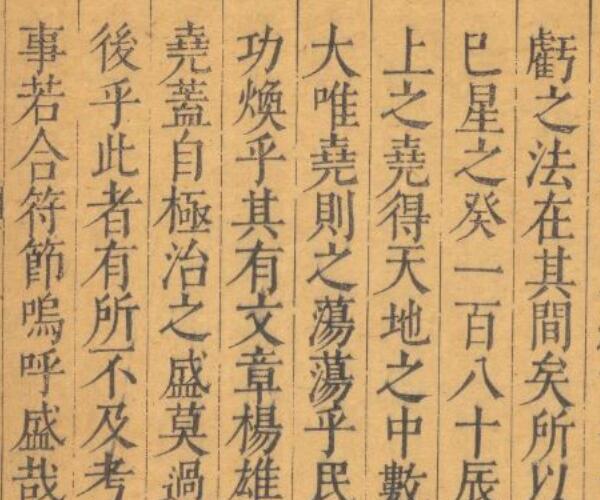 虧之法在其間矣所以
巳星之癸一百八十辰
上之堯得天地之中數
大唯堯則之蕩蕩乎民
功煥乎其有文章楊雄
堯蓋自極治之盛莫過
後乎此者有所不及考
事若合符節嗚呼盛哉